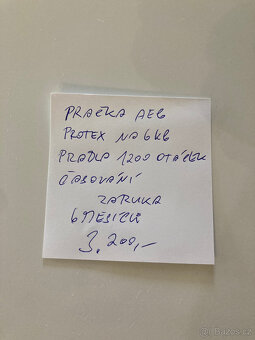 PRAČKA AEG
PROTEX NA 6 KG
PRÁDLA 1200 OTÁČEK
ČASOVÁNÍ
ZÁRUKA
6 MĚSÍCŮ
3.200,-